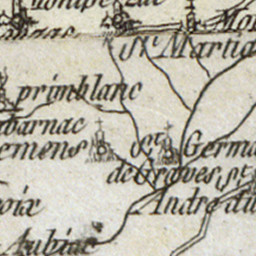 St Martia
primblanc
barnac
emens
St Germa
de Graves
St
oix
Andre du
Aubiac